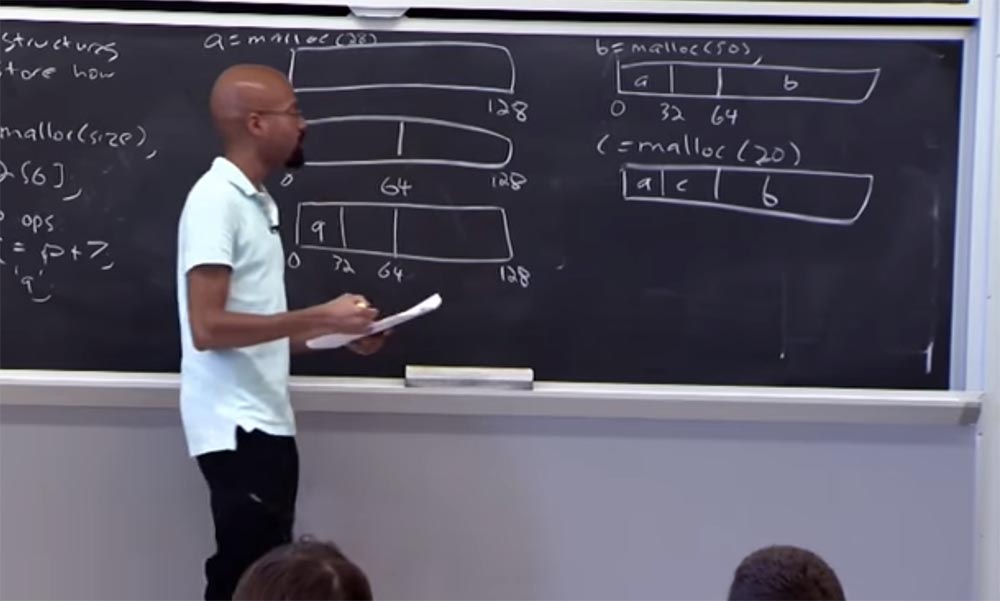 structures
store how
malloc(size),
256],
ops
= p+7,
'a'
a=malloc(28)
128
0 64 128
a
0 32 64 128
b=malloc(50),
a b
0 32 64
c=malloc(20)
a c b